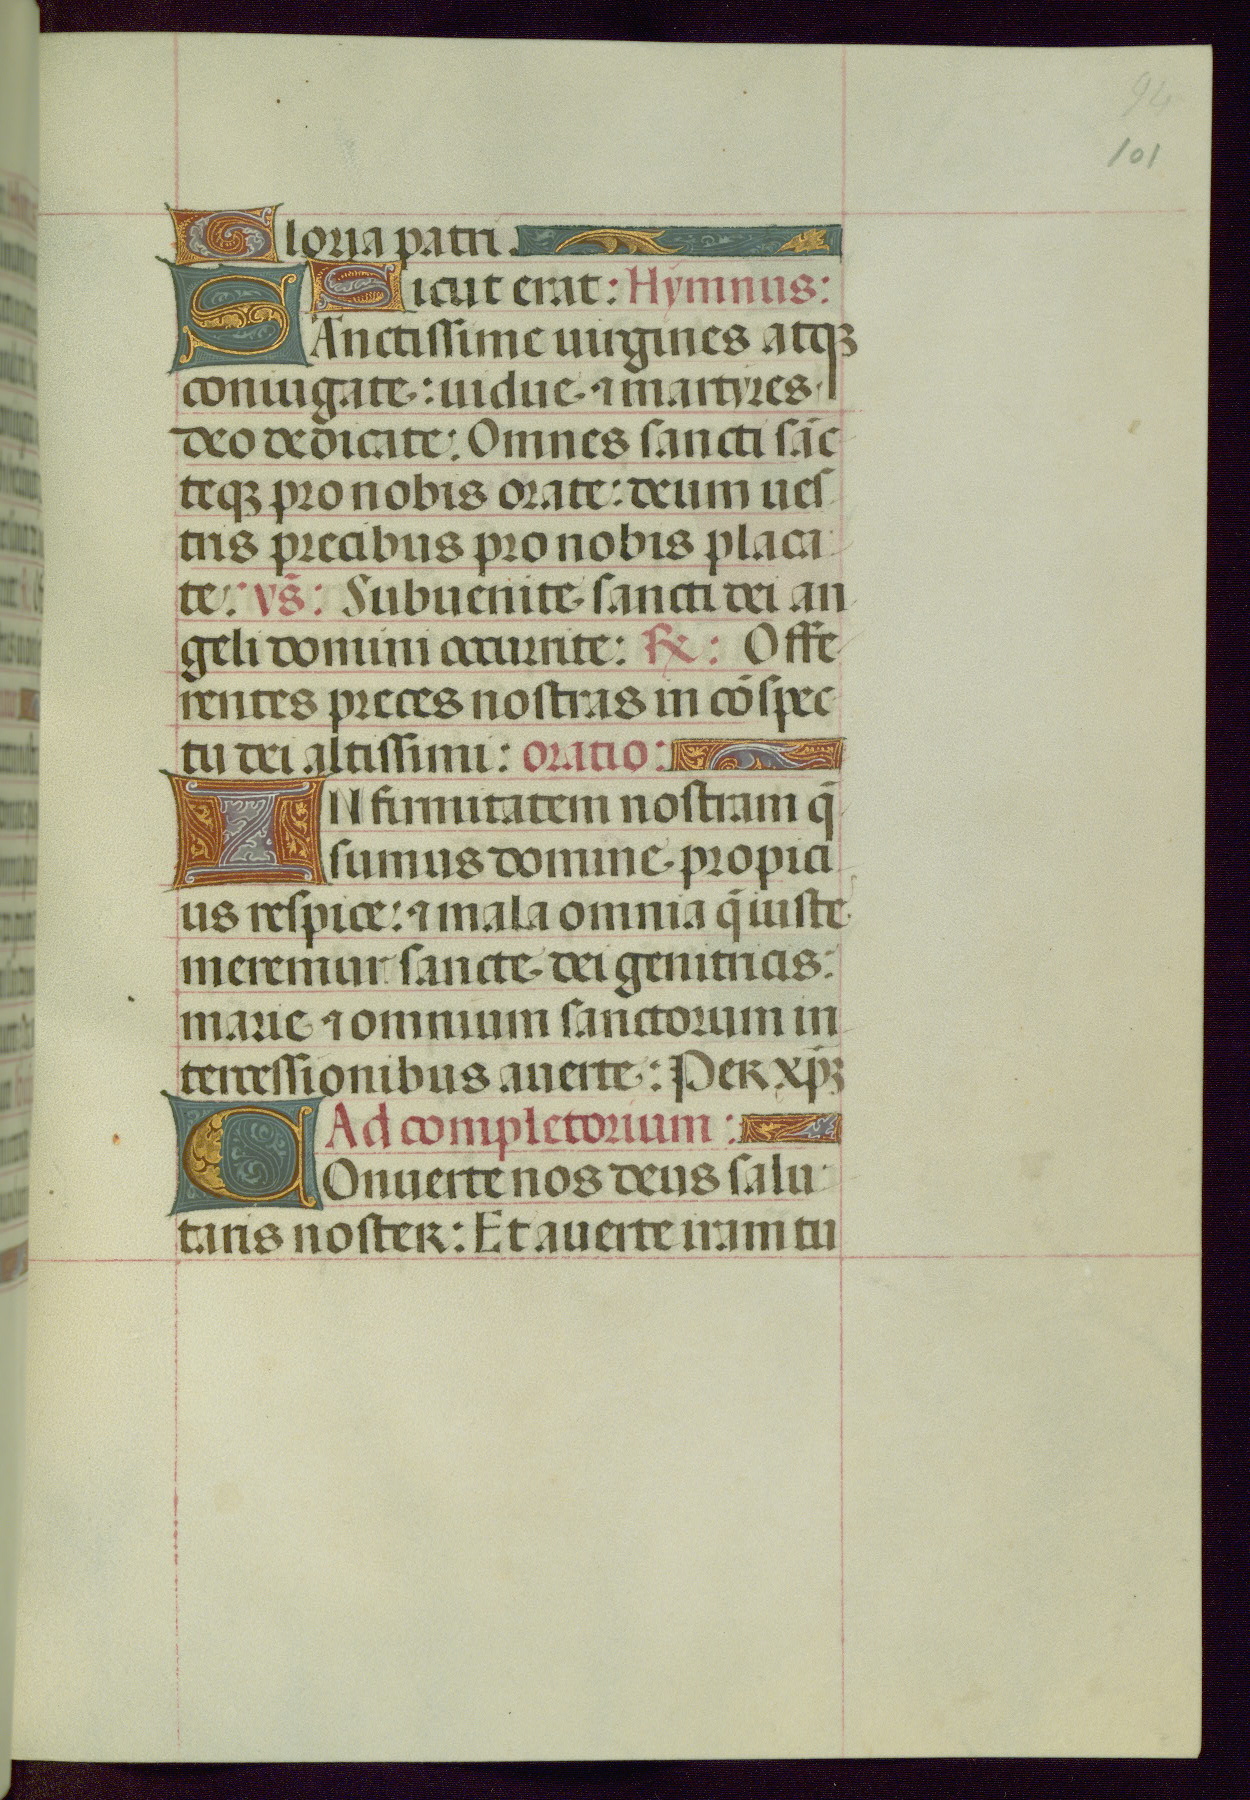 94
101
Gloria patri.
Sicut erat: Hymnus:
SAnctissime uirgines atqꝫ
coniugate: uidue ⁊ martyres
deo dedicate: Omnes sancti sāc
teqꝫ pro nobis orate: deum ues
tris precibus pro nobis placa
te: vs̄: Subuenite sancti dei an
geli domini occurrite: Rx: Offe
rentes preces nostras in cōspec
tu dei altissimi: oratio:
IN firmitatem nostram q̄
sumus domine propici
us respice: ⁊ mala omnia q̄ iuste
meremur sancte dei genitricis:
marie ⁊ omnium sanctorum in
tercessionibus auerte: Per xp̄ꝫ
Ad completorium:
COnuerte nos deus salu
taris noster: Et auerte iram tu